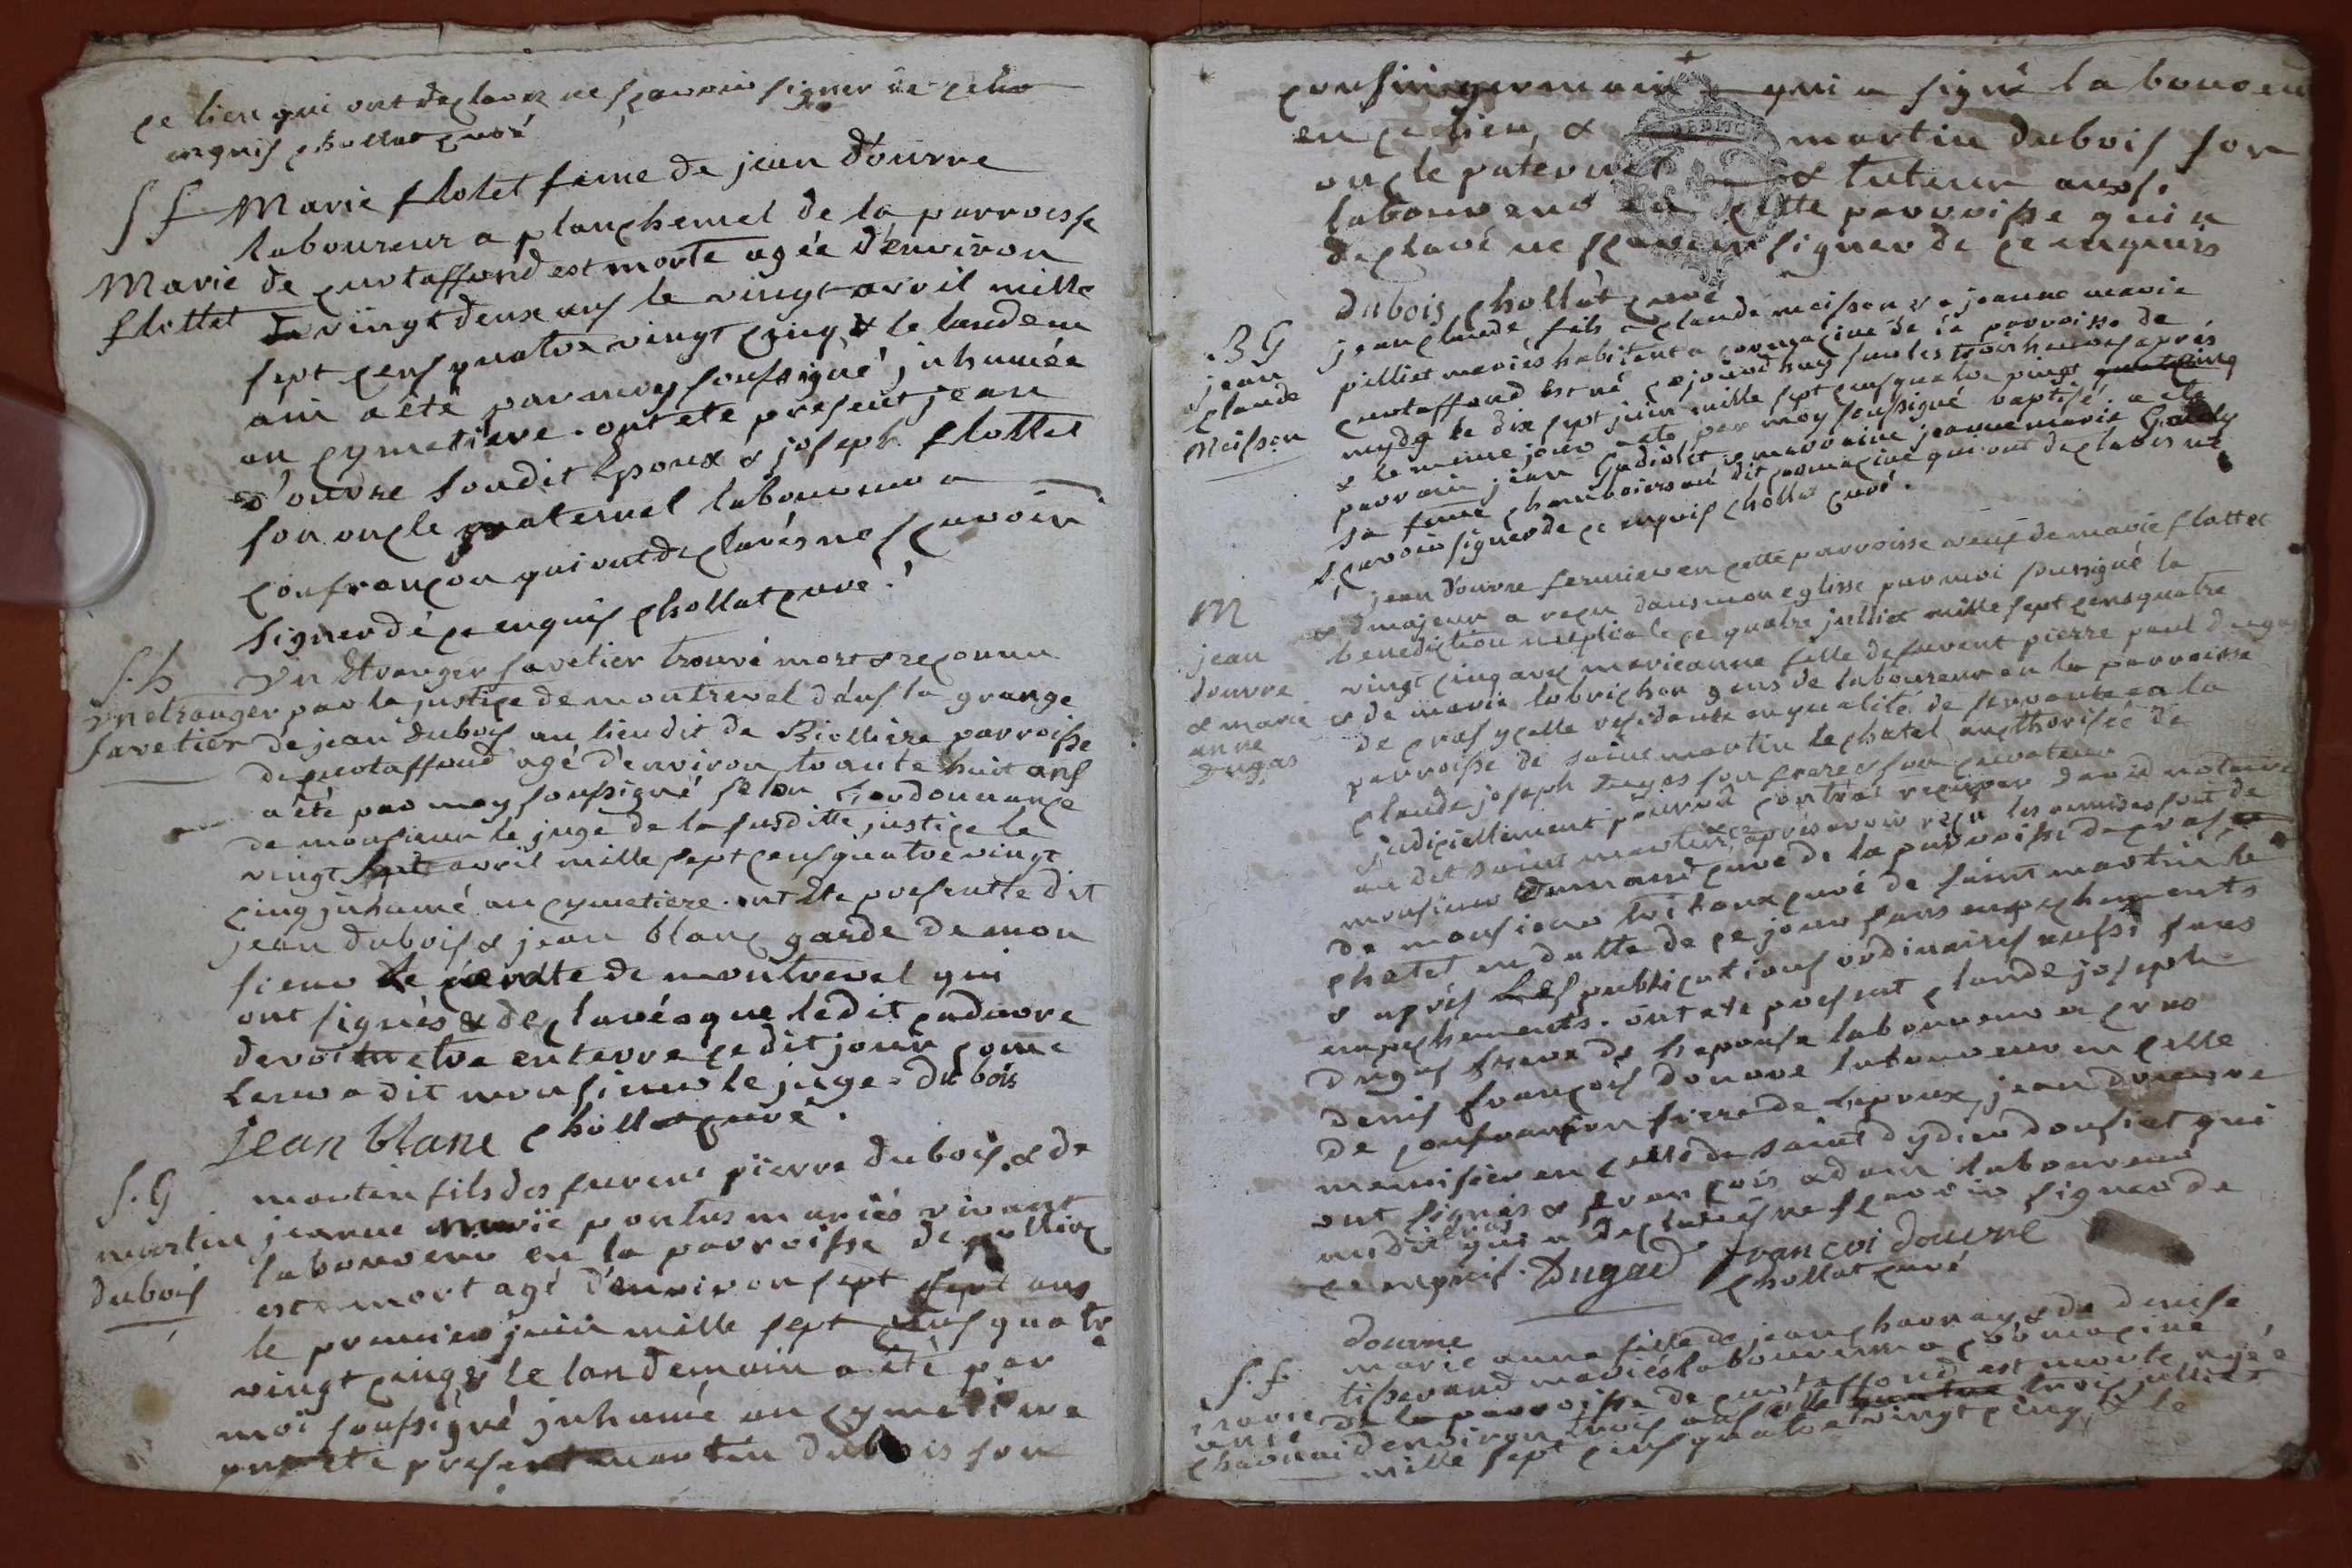 ce lieu qui ont declarez ne sçavoir signer de cela
enquis chollat curé
S f Marie flolet feme de jean d'ourre
laboureur a planchemel de la parroisse
Marie de curtaffond est morte agée d'environ
flottet vingt deux ans le vingt avril mille
sept cens quatre vingt cinq & le lendem
ain a été par moy soussigné jnhumée
au cymetiere. ont ete present jean
d'ouvre son dit Epoux & joseph flottet
son oncle paternel laboureur a
confrançon qui ont declarés ne sçavoir
signer dé ce enquis chollat curé.
S. h Vn Etranger savetier trouvé mort & reconnu
vn etranger par la justice de montrevel dans la grange
savetier de jean dubois au lieu dit de Biolliere parroisse
de curtaffond agé d'environ trante huit ans
a été par moy soussigné selon l'ordonnance
de monsieur le juge de la susditte justice le
vingt sept avril mille sept cens quatre vingt
cinq jnhumé au cymetiere. ont ete present le dit
jean dubois & jean blanc garde de mon
sieur le comte de montrevel qui
ont signés & declarés que le dit cadavre
devoit etre enterré ce dit jour come
leur a dit monsieur le juge. du bois
jean blanc chollat curé.
S. G martin fils des furent pierre dubois & de
martin jeanne marie pontus mariés vivant
dubois laboureur en la parroisse de
est mort agé d'environ sept sept ans
le premier juin mille sept cens quatre
vingt cinq & le landemain a été par
moi soussigné jnhumé au cymetiere
ont ete present martin dubois son
cousin germain qui a signé laboureur
en ce lieu & martin dubois son
oncle paternel & tuteur aussi
laboureur en cette parroisse qui a
declaré ne sçavoir signer de ce enquis
dubois chollat curé
B G jean claude fils a claude moisson & a jeanne marie
jean pilliet mariés habitent a cormacine de la parroisse de
claude curtaffond est né cejourd'huy sur les trois heures aprés
Moisson mydy le dix sept juin mille sept cens quatre vingt cinq
& le meme jour a ete par moy soussigné baptisé. a ete
parrain jean & marraine jeanne marie
sa feme au dit cormacine qui ont declarés ne
sçavoir signer de ce enquis chollat curé.
M jean d'ouvre fermier en cette parroisse veuf de marie flottet
& majeur a reçu dans mon eglisse par moi soussigné la
jean benediction nuptiale ce quatre juillet mille sept cens quatre
douvre vingt cinq avec marie anne fille de furent pierre paul dugas
& marie & de marie lobrichon gens de laboureur en la parroisse
anne de cras ycelle residente en qualité de servante en la
dugas parroisse de saint martin le chatel aucthorisée de
claude joseph dugas son frere & son curateur
judiciellement pourvu contrat reçu par david notaire
au dit saint martin, aprés avoir reçu les remises fait de
monsieur curé de la parroisse de cras &
de monsieur curé de saint martin le
chatel en datte de ce jour sans empechements
& aprés les publications ordinaires aussi sans
empechements. ont ete present claude joseph
dugas frere de l'epouse laboureur a cras
denis françois douvre laboureur en celle
de confrançon frere de l'epoux, jean douvre
menuisier en celle de saint dydier donsiat qui
ont signés & françois adam laboureur
audit cras qui a declarés ne sçavoir signer de
ce enquis. Dugad françoi douvre
chollat curé
dourne
S. f. marie anne fille de jean charnay & de denise
marie tisserand mariés laboureur a cormacine
anne de la parroisse de curtaffond est morte agée
charnai d'environ trois ans le trois juilliet
mille sept cens quatre vingt cinq & le